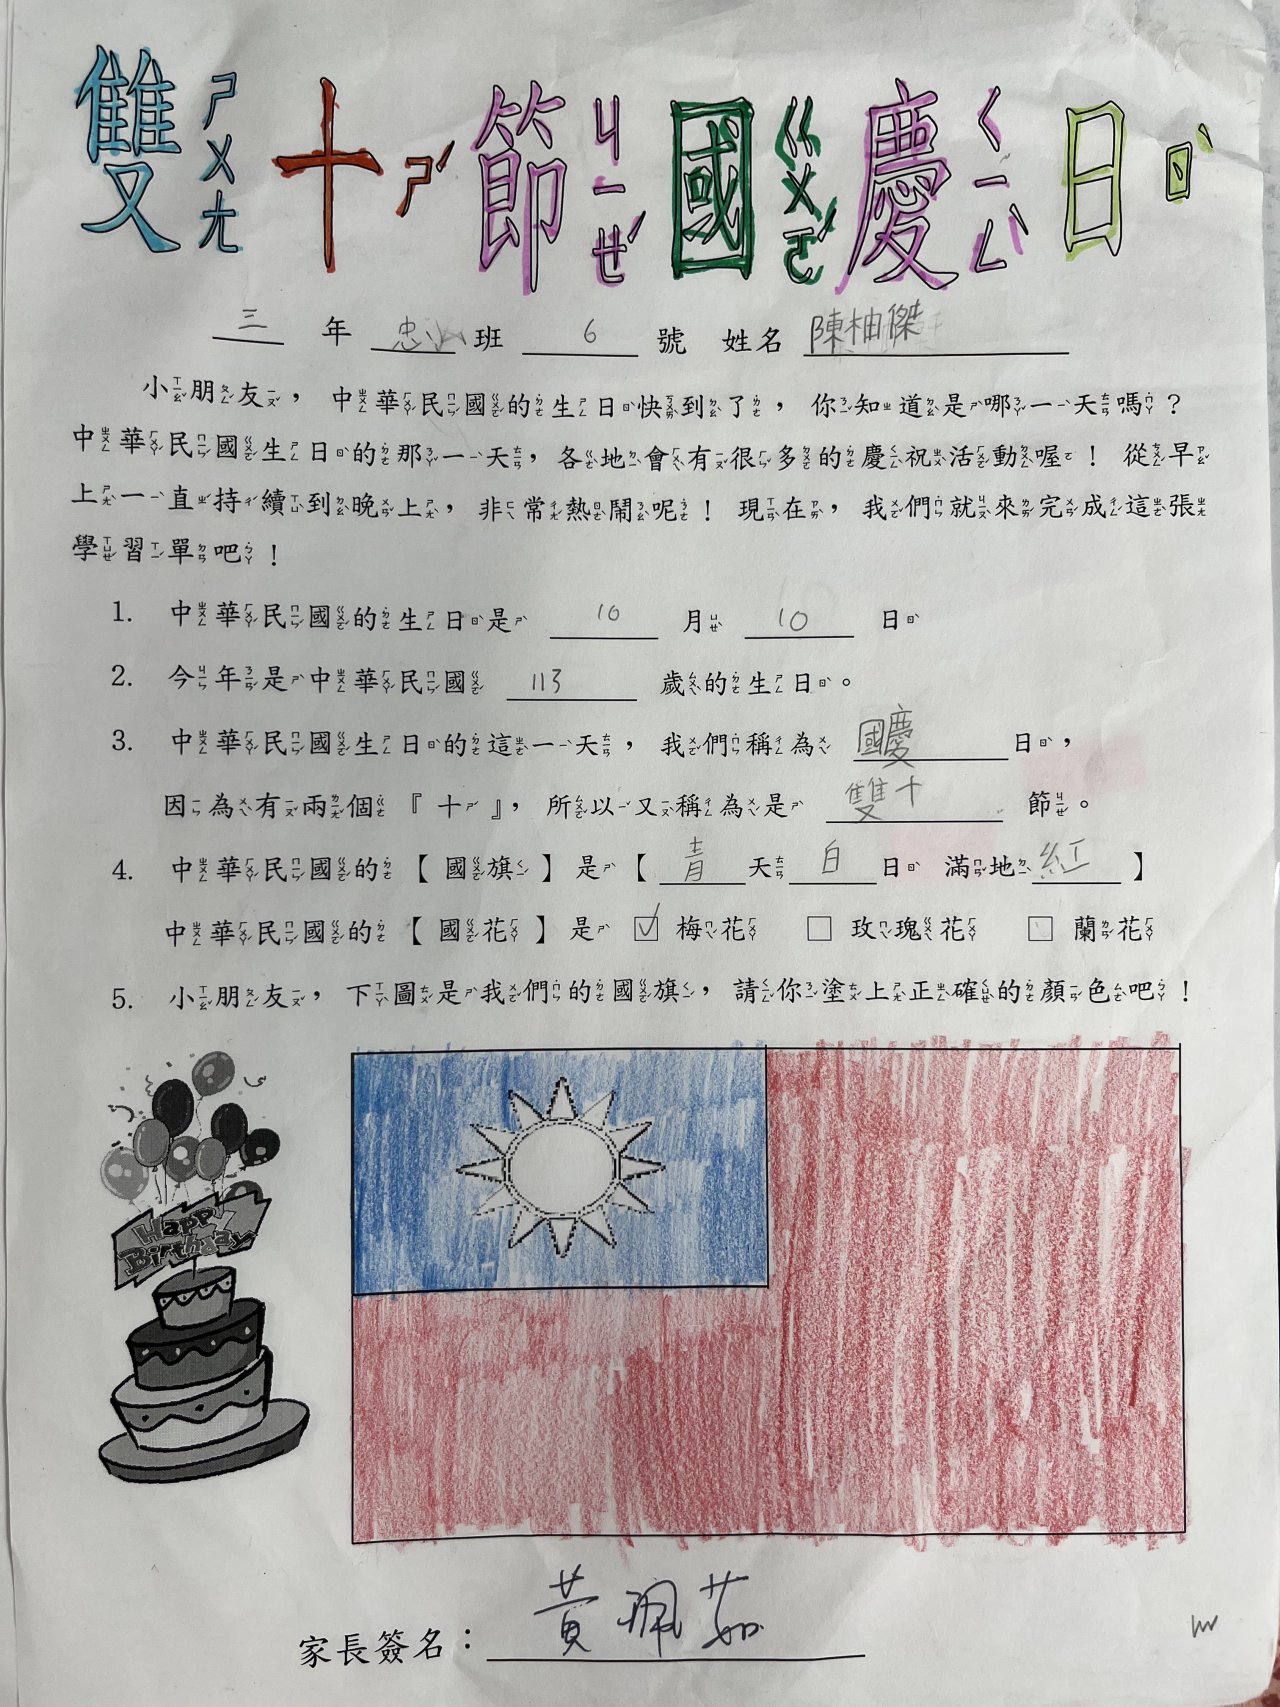 雙ㄕㄨㄤ 十ㄕˊ 節ㄐㄧㄝˊ 國ㄍㄨㄛˊ 慶ㄑㄧㄥˋ 日ㄖˋ
三 年 忠 班 6 號 姓名 陳柚傑
小朋友，中華民國的生日快到了，你知道是哪一天嗎？
中華民國生日的那一天，各地會有很多的慶祝活動喔！從早
上一直持續到晚上，非常熱鬧呢！現在，我們就來完成這張
學習單吧！
1. 中華民國的生日是 10 月 10 日
2. 今年是中華民國 113 歲的生日。
3. 中華民國生日的這一天，我們稱為 國慶 日，
因為有兩個『十』，所以又稱為是 雙十 節。
4. 中華民國的【國旗】是【青天白日 滿地紅】
中華民國的【國花】是 ☑ 梅花 □ 玫瑰花 □ 蘭花
5. 小朋友，下圖是我們的國旗，請你塗上正確的顏色吧！
Happy
Birthday
家長簽名：黃珮茹